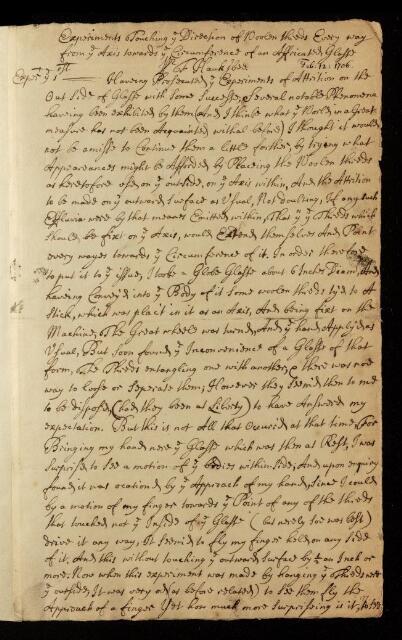 Experiments Touching yͤ Direction of Woolen threds Every way
from yͤ Axis towards yͤ Circumference of an Attricated Glasse
By Fr Hauksbee Feb. 12. 1706
Experᵗ yͤ 1ˢᵗ Having Prosecuted yͤ Experiments of Attrition on the
Out Side of Glasse with some Success; Several notable Phenomena
having been exhibited by them (And I think what yͤ World in a Great
measure has not been Acquainted withal before) I thought it would
not be amisse to Continue them a little further, by trying what
Appearances might be Afforded by Placing the Woolen threds
as heretofore used on yͤ outside, on yͤ Axis within, And the Attrition
to be made on yͤ outward surface as Usual, Not doubting, If any such
Effluvia were by that means Emitted within, That yͤ Threds which
should be fixt on yͤ Axis, would Extend themselves And Point
every wayes towards yͤ Circumference of it. In order therefore
to put it to yͤ issue, I tooke a Globe Glasse about 6 Inches Diamʳ, And
having Convey'd into yͤ Body of it Some woolen threds ty'd to A
Stick, which was plac'd in it as an Axis, And being fixt on the
Machine, The Great wheele was turn'd, And yͤ hand Apply'd as
Usual, But soon found yͤ Inconvenience of a Glasse of that
form, The Threds entangling one with another, & there was noe
way to loose or seperate them; However they seemid then to me
to be dispos'd (had they been at Liberty) to have Answered my
expectation. But this is not All that Occurid at that time, For
Bringing my hand neer yͤ Glasse which was then at Rest, I was
Surpris'd to see a motion of yͤ bodies within side; And upon enquiry
found it was ocationd by yͤ Approach of my hand, since I could
by a motion of my finger towards yͤ Point of any of the threds
that touched not yͤ Inside of yͤ Glasse (but neerly soe was best)
drive it any way. It seemid to fly my finger held on any side
of it, And this without touching yͤ outward surface by ½ an Inch or
more. Now when this experiment was made by hanging yͤ threds neer
yͤ outside, It was very od (as before related) to see them fly the
Approach of a finger Yet how much more Surprissing is it, to see